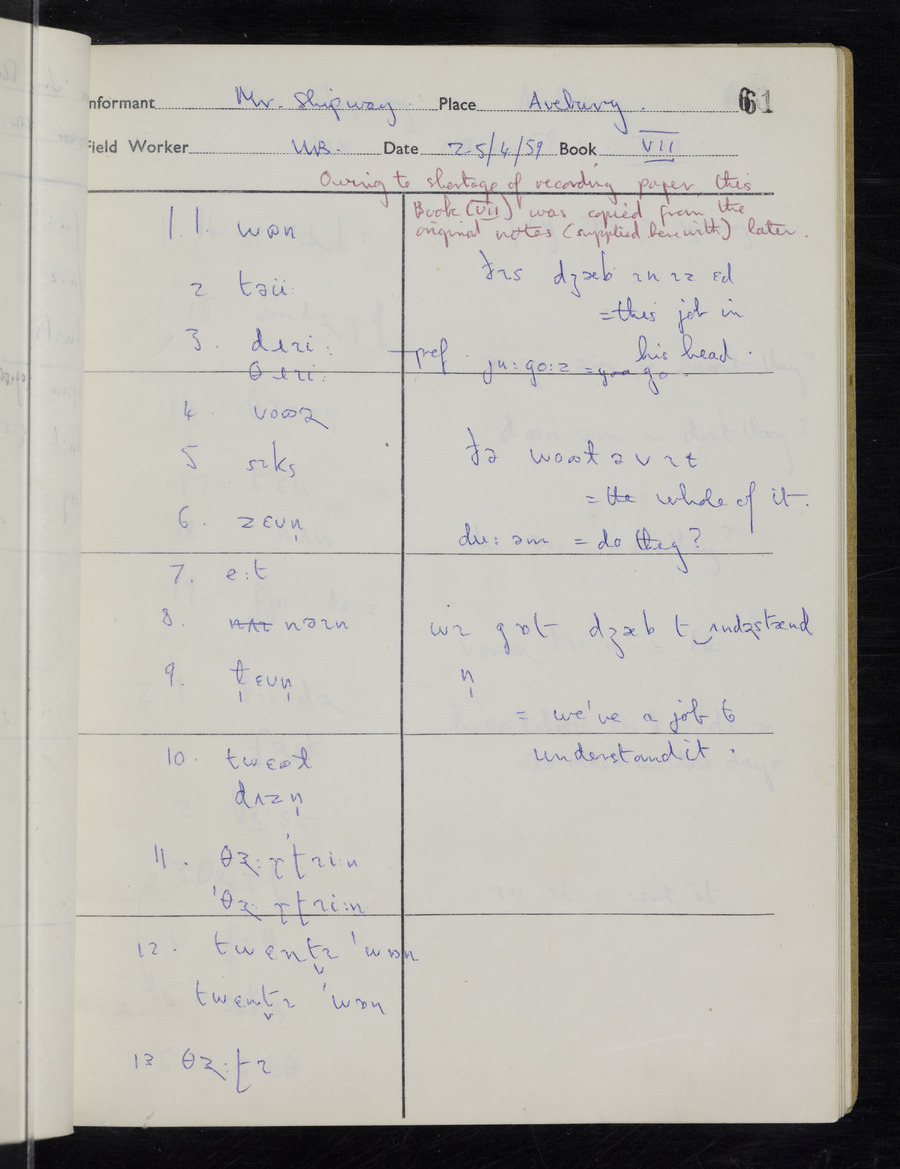 Informant Mr. Shipway. Place Avebury. 61
Field Worker WB. Date 25/4/59 Book VII
Owing to shortage of recording paper, this
Book (VII) was copied from the
original notes (supplied herewith) later.
1.1. wɒn
2 təii:
3. dɹɪi:
θɹɪi:
4 vɒəɹ
5 sɪks
6. zɛvn̩
7. e:t
8. nəɪn
9. t̩ɛvn̩
10. twɛəɫ
dʌzn̩
11. θɜ:ɽʈɹi:n
ˈθɜ:ɽʈɹi:n
12. twɛntɪ ˈwɒn
twɛntɪ ˈwɒn
13 θɜ:ʈɪ
ðɪs dʒæb ɪn ɪz ɛd
= this job in
his head.
pref. ju: go:z = you go.
ðə wɒəɫ ə v ɪt
= the whole of it.
du: əm = do they?
wɪ gɒt dʒæb t‿ʌndəstænd
n̩
= we've a job to
understand it.